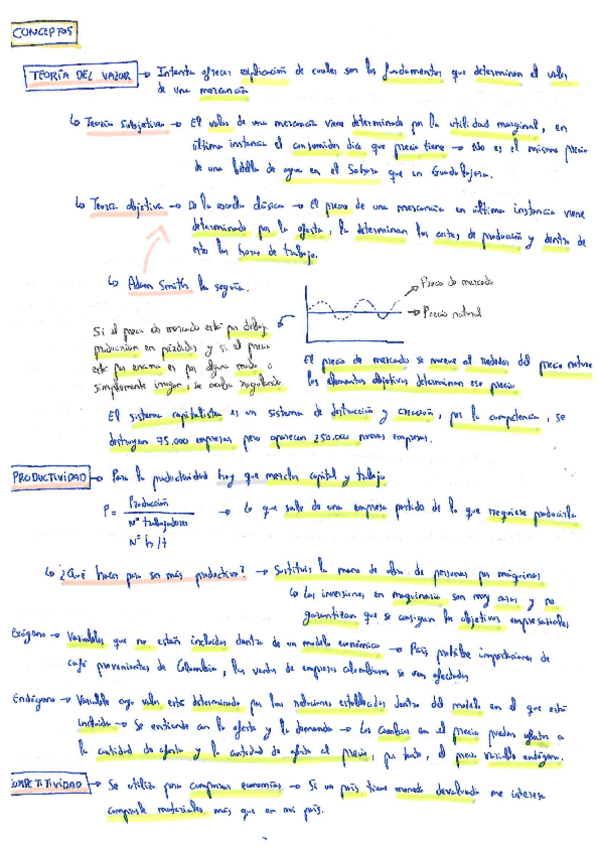 CONCEPTOS
TEORÍA DEL VALOR → Intenta ofrecer explicación de cuales son los fundamentos que determinan el valor
de una mercancía
↳ Teoría subjetiva → El valor de una mercancía viene determinado por la utilidad marginal, en
última instancia el consumidor dice que precio tiene → No es el mismo precio
de una botella de agua en el Sahara que en Guadalajara.
↳ Teoría objetiva → De la escuela clásica → El precio de una mercancía en última instancia viene
determinado por la oferta, la determinan los costes de producción y dentro de
esto las horas de trabajo.
↳ Adam Smith la seguía.
Precio de mercado
Precio natural
Si el precio de mercado está por debajo
producirían en pérdidas y si el precio
está por encima es por algún motivo o
simplemente, se acaba regulando
El precio de mercado se mueve alrededor del precio natural
los elementos objetivos determinan ese precio
El sistema capitalista es un sistema de destrucción y creación, por la competencia, se
destruyen 75.000 empresas pero aparecen 250.000 nuevas empresas.
PRODUCTIVIDAD → Para la productividad hay que mezclar capital y trabajo
P = Producción
Nº trabajadores
Nº h/t
→ Lo que sale de una empresa partido de lo que requiere producirlo
↳ ¿Qué hacer para ser más productivo? → Sustituir la mano de obra de personas por máquinas
↳ Las inversiones en maquinaria son muy caras y no
garantizan que se consigan los objetivos empresariales
Exógena → Variables que no están incluidas dentro de un modelo económico → País prohíbe importaciones de
café provenientes de Colombia, las ventas de empresas colombianas se ven afectadas
Endógena → Variable cuyo valor está determinado por las relaciones establecidas dentro del modelo en el que está
incluida → Se entiende con la oferta y la demanda → Los cambios en el precio pueden afectar a
la cantidad de oferta y la cantidad de oferta al precio, por tanto, el precio variable endógena.
COMPETITIVIDAD → Se utiliza para comparar economías → Si un país tiene moneda devaluada me interesa
comprarle materiales más que en mi país.